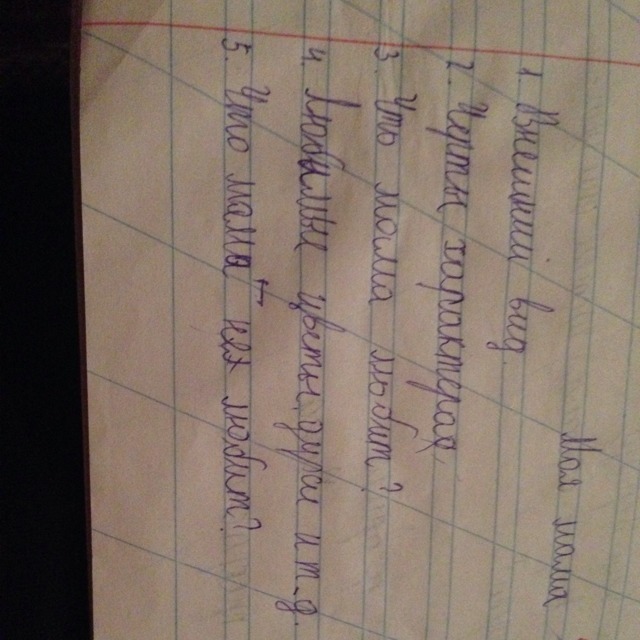 Моя мама
1. Внешний вид.
2. Черты характера
3. Что мама любит?
4. Любимые цветы, духи и т.д.
5. Что мама не любит?